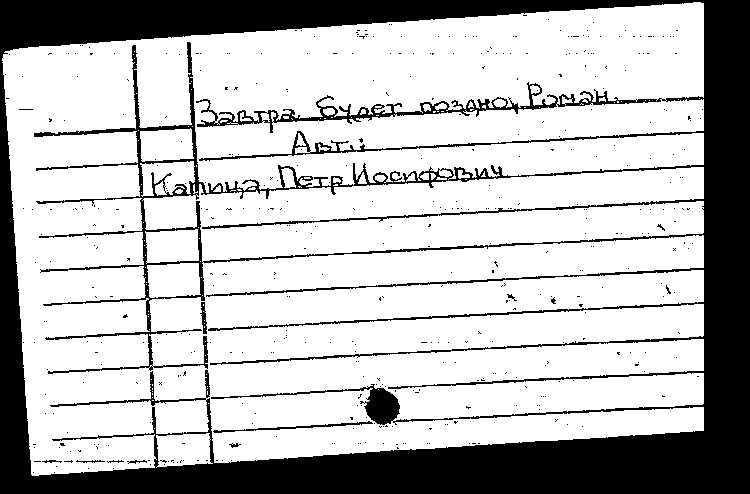 Завтра будет поздно, Роман.
Авт.:
Капица, Петр Иосифович